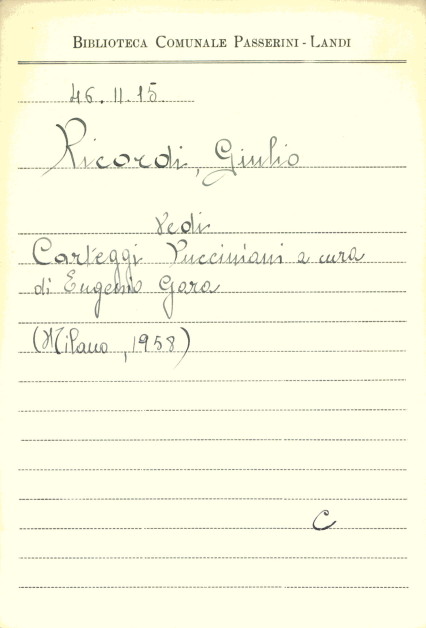 BIBLIOTECA COMUNALE PASSERINI - LANDI
46.II.15.
Ricordi, Giulio
Vedi
Carteggi Pucciniani a cura
di Eugenio Gara
(Milano, 1958)
C